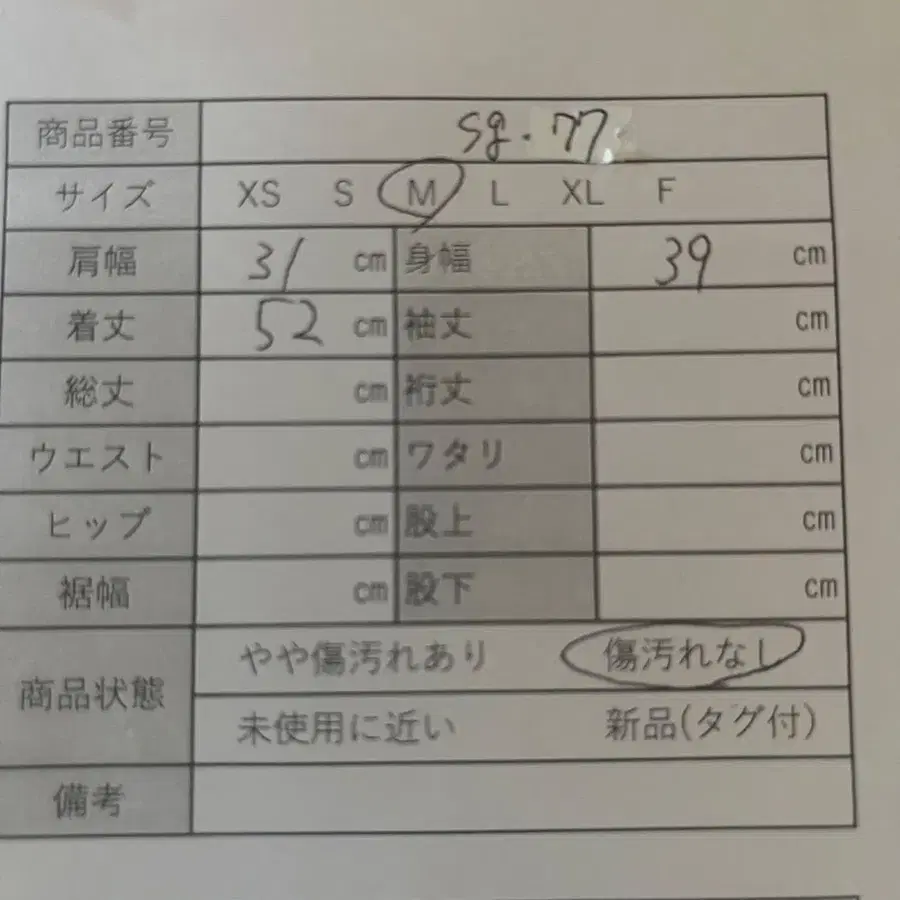 商品番号 sg.77
サイズ XS S M L XL F
肩幅 31 cm 身幅 39 cm
着丈 52 cm 袖丈 cm
総丈 cm 裄丈 cm
ウエスト cm ワタリ cm
ヒップ cm 股上 cm
裾幅 cm 股下 cm
商品状態 やや傷汚れあり 傷汚れなし
未使用に近い 新品(タグ付)
備考